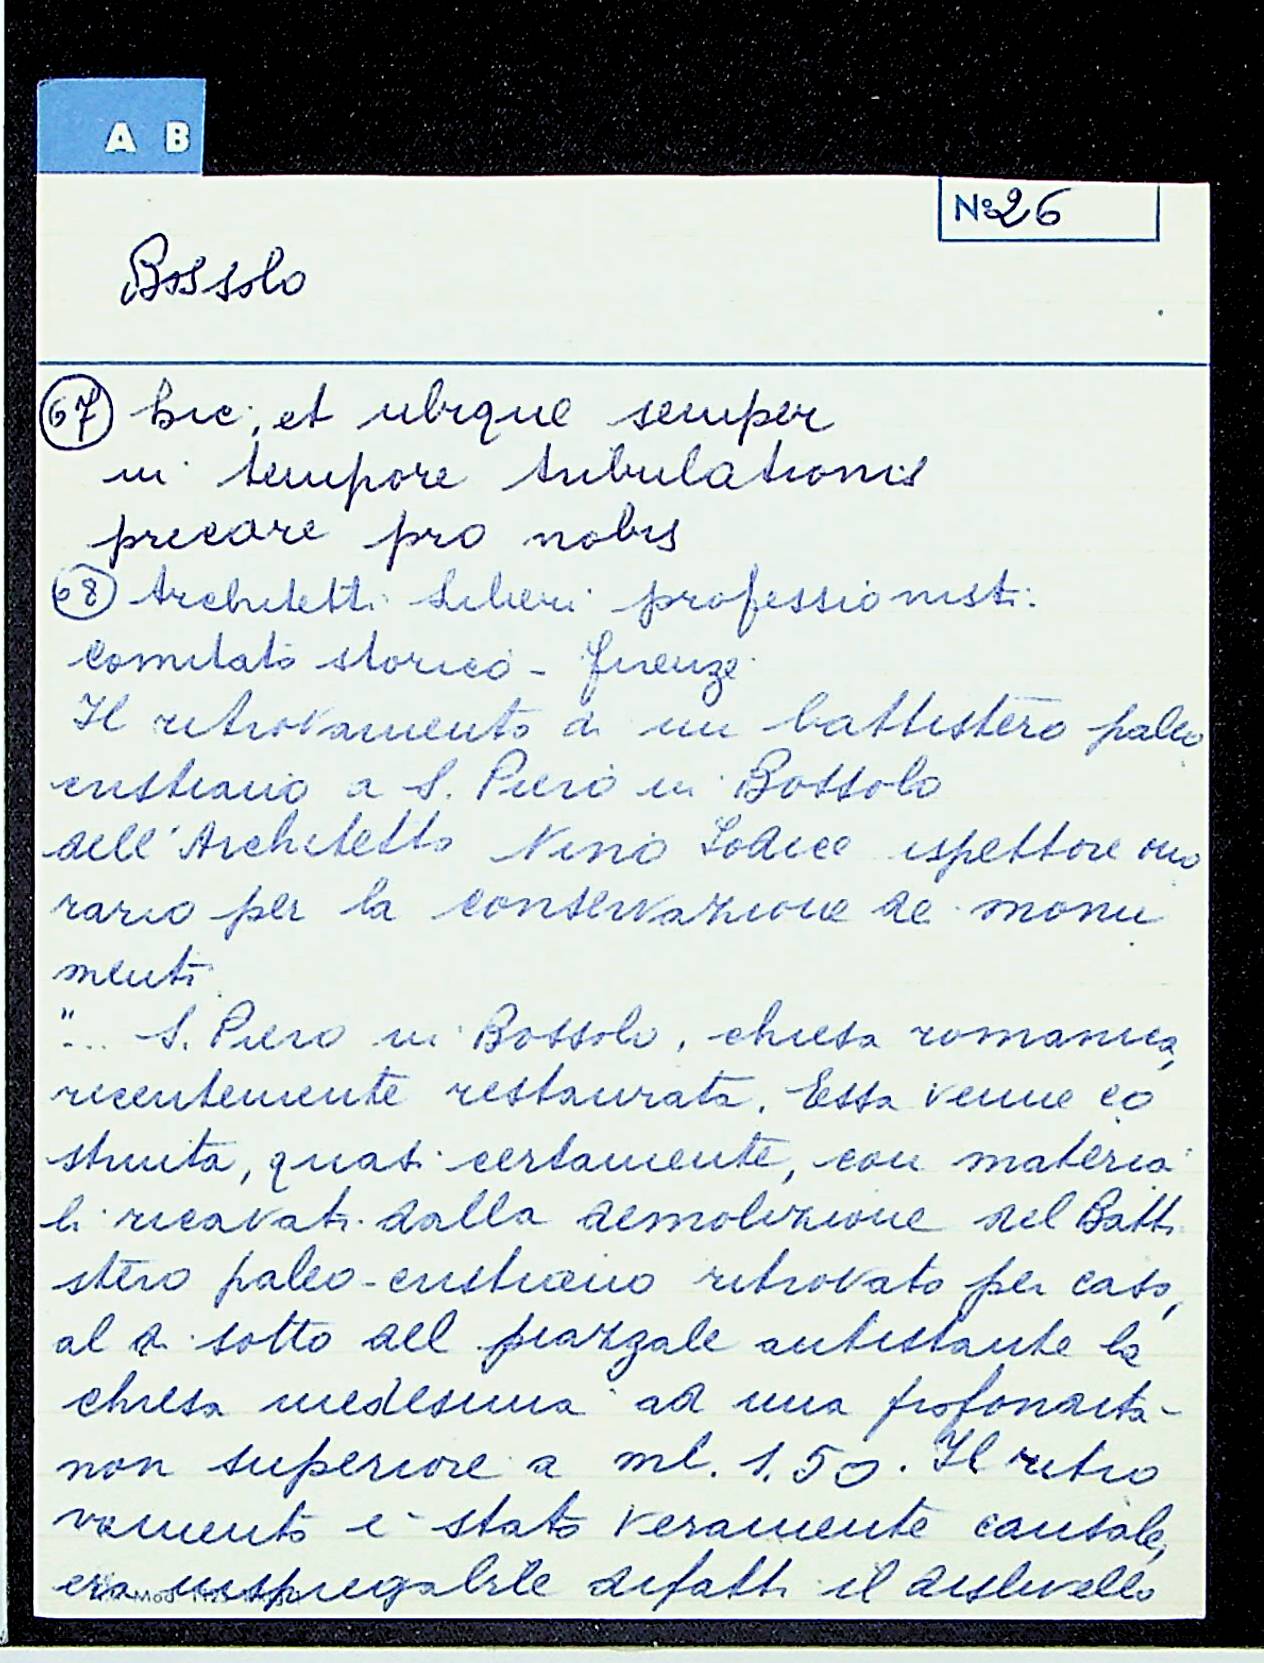 A B
N° 26
Bossolo
67 hic, et ubique semper
in tempore tribulationis
precare pro nobis
68 Architetti liberi professionisti:
comitato storico - Firenze
Il ritrovamento di un battistero paleo
cristiano a S. Piero in Bossolo
dell'Architetto Nino Lodice ispettore ono
rario per la conservazione dei monu
menti
"... S. Piero in Bossolo, chiesa romanica,
recentemente restaurata. Essa venne co
struita, quasi certamente, con materia
li ricavati dalla demolizione del Batti
stero paleo-cristiano ritrovato per caso,
al di sotto del piazzale antistante la
chiesa medesima ad una profondità
non superiore a ml. 1.50. Il ritro
vamento è stato veramente causale,
era inspiegabile difatti il dislivello